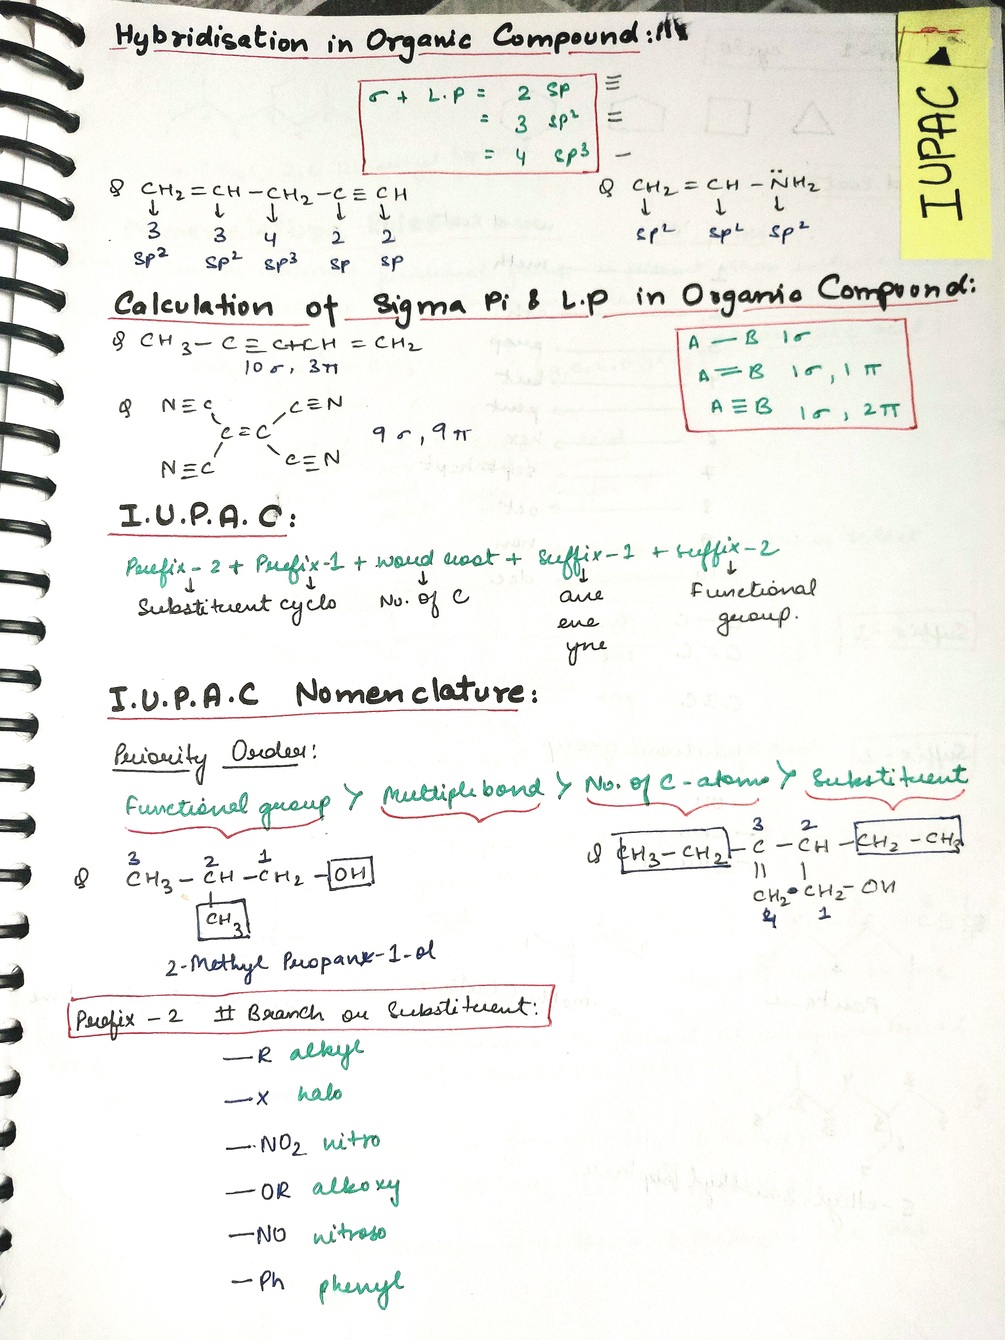 Hybridisation in Organic Compound:
IUPAC
σ + L.P = 2 sp ≡
= 3 sp² =
= 4 sp³ –
Q CH₂ = CH – CH₂ – C ≡ CH
↓ ↓ ↓ ↓ ↓
3 3 4 2 2
sp² sp² sp³ sp sp
Q CH₂ = CH – N̈H₂
↓ ↓ ↓
sp² sp² sp²
Calculation of Sigma Pi & L.P in Organic Compound:
Q CH₃ – C ≡ C–CH = CH₂
10σ, 3π
A — B 1σ
A = B 1σ, 1π
A ≡ B 1σ, 2π
Q N≡C C≡N
C=C 9σ, 9π
N≡C C≡N
I.U.P.A.C:
Prefix-2 + Prefix-1 + word root + Suffix-1 + suffix-2
↓ ↓ ↓ ↓ ↓
Substituent cyclo No. of C ane Functional
ene group.
yne
I.U.P.A.C Nomenclature:
Priority Order:
Functional group > Multiple bond > No. of C-atoms > Substituent
3 2 1
Q CH₃ – CH – CH₂ – OH
CH₃
2-Methyl Propane-1-ol
3 2
Q CH₃–CH₂ – C – CH – CH₂–CH₃
CH₂ CH₂–OH
4 1
Prefix-2 # Branch or Substituent:
—R alkyl
—X halo
—NO₂ nitro
—OR alkoxy
—NO nitroso
—Ph phenyl